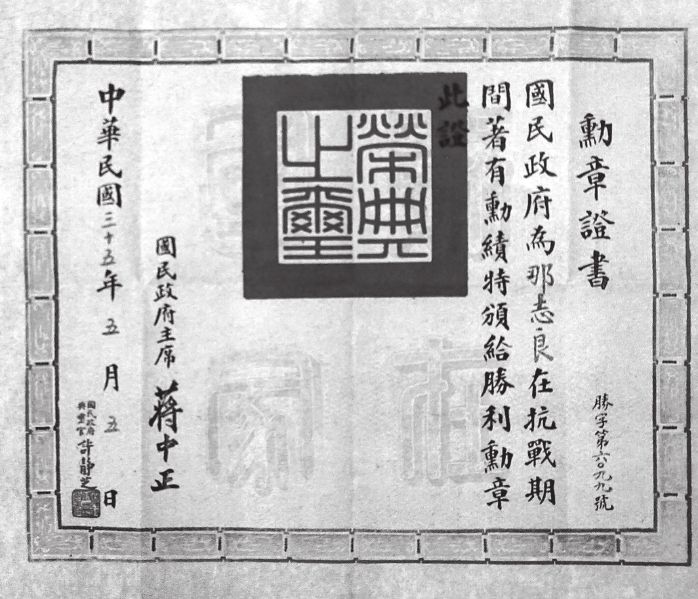 勳章證書
勝字第六〇九九號
國民政府為那志良在抗戰期
間著有勳績特頒給勝利勳章
此證
榮典之璽
國民政府主席 蔣中正
中華民國三十五年五月五日
國民政府
典璽官 許靜芝